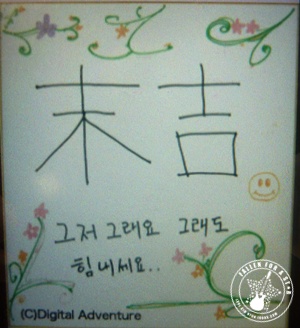 末吉
그저 그래요 그래도
힘내세요..
(C)Digital Adventure
FALLEN FOR A STAR